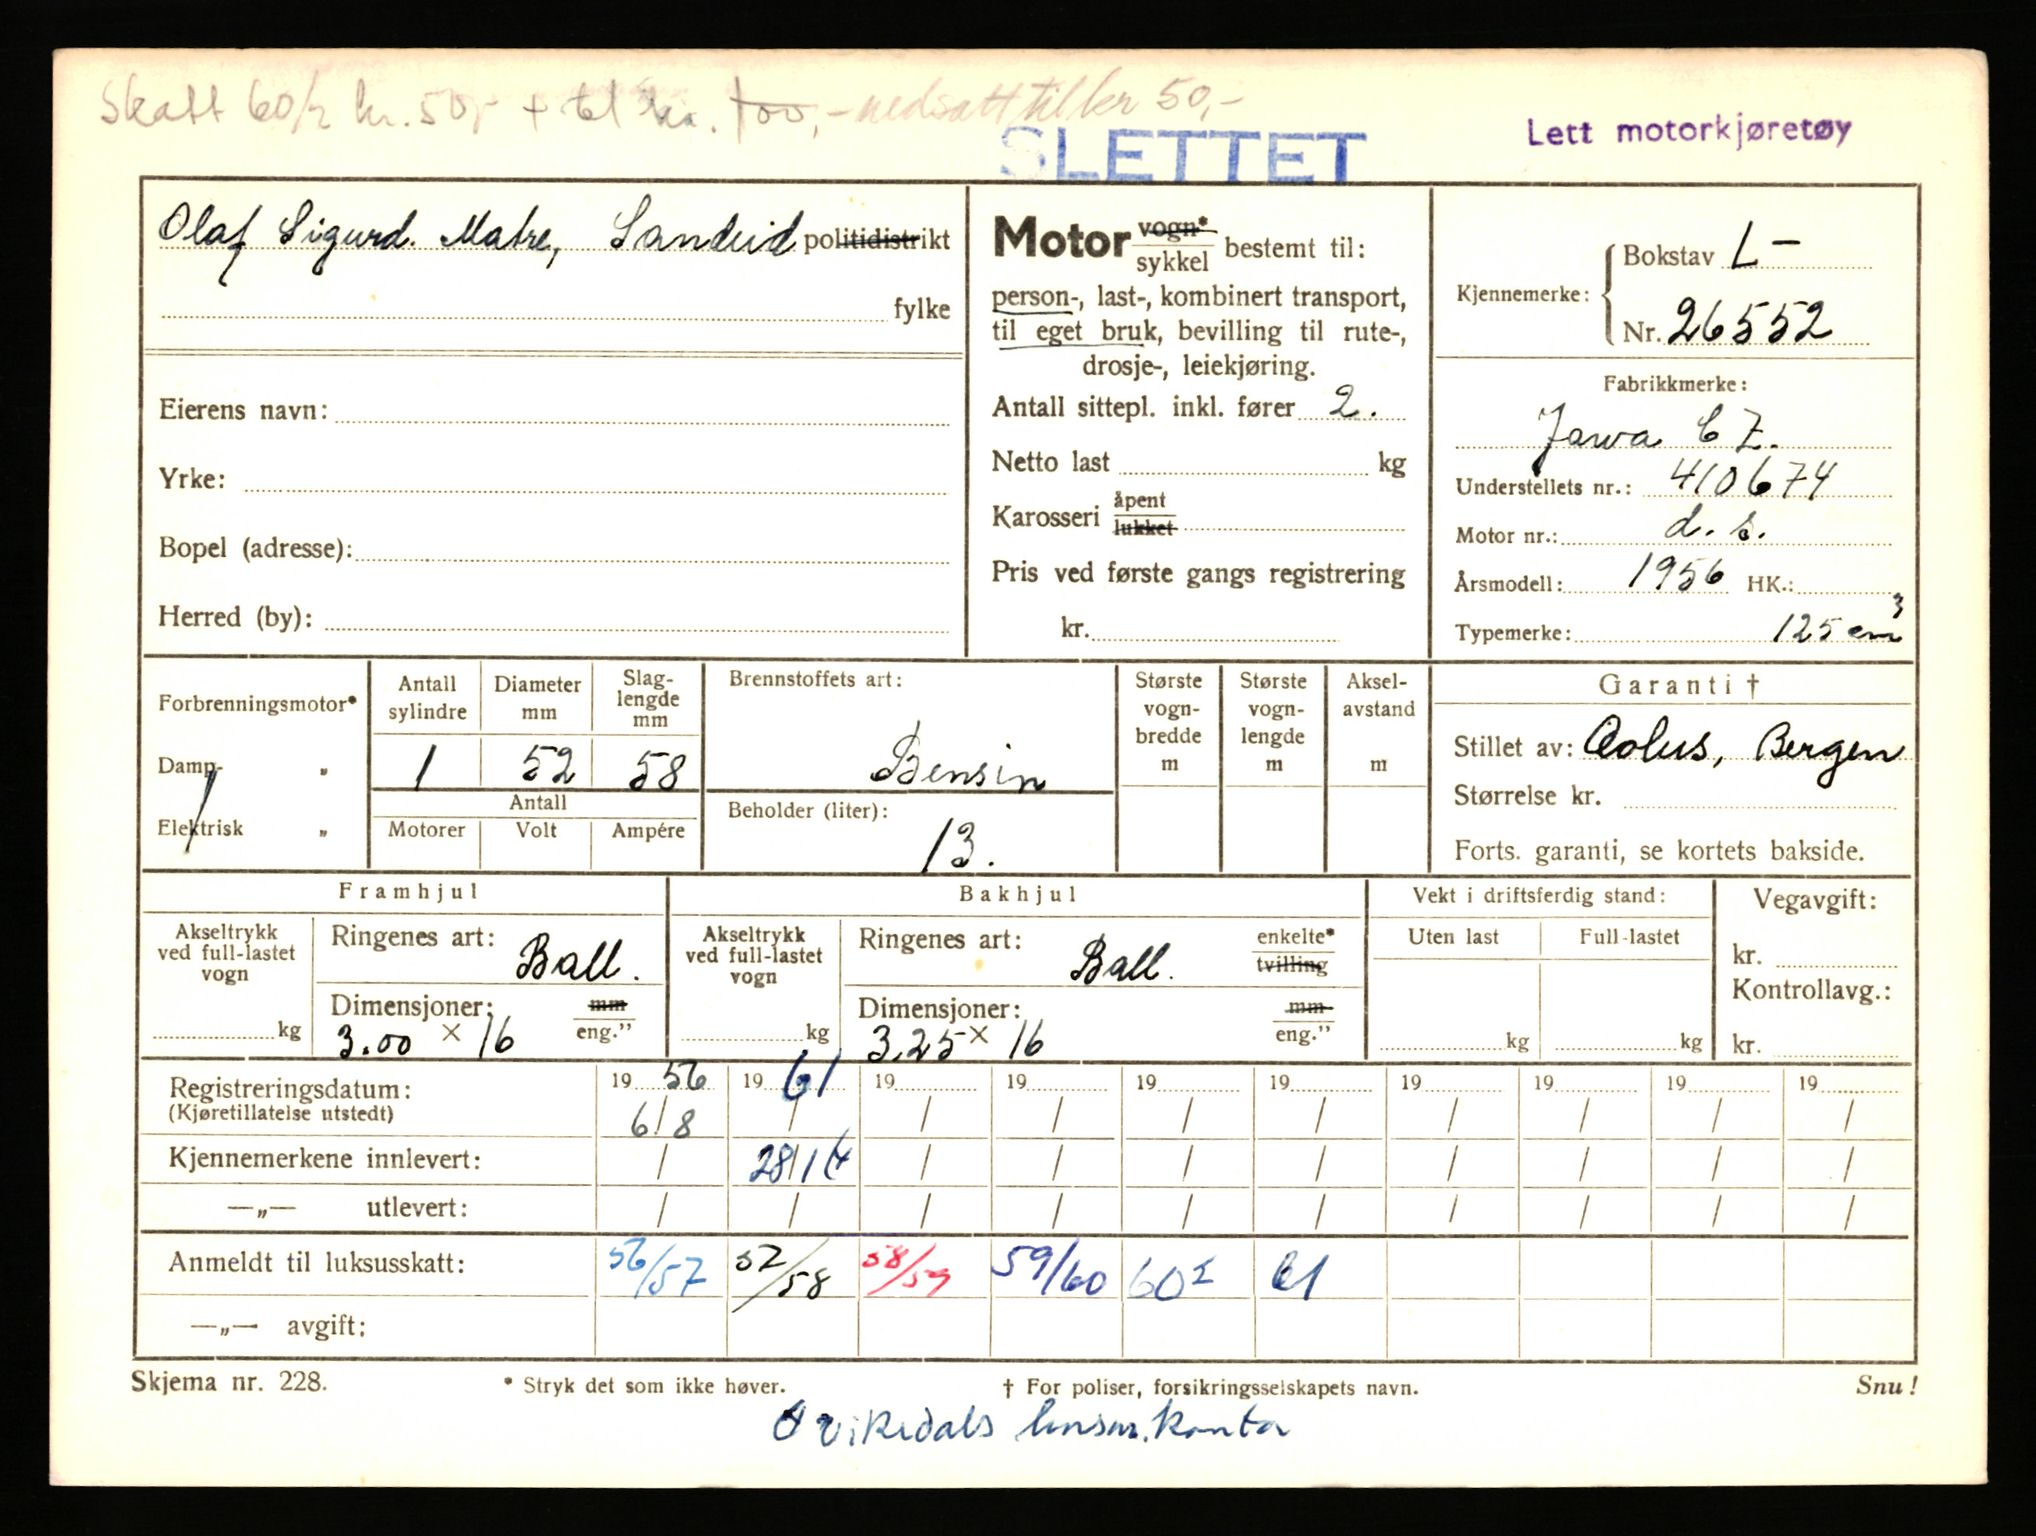 Skatt 60/2 kr. 50,- + tl kr. 100,- nedsatt til kr 50,-
SLETTET
Lett motorkjøretøy
Olaf Sigurd Matre, Sandeid politidistrikt
fylke
Eierens navn:
Yrke:
Bopel (adresse):
Herred (by):
Motor vogn* sykkel bestemt til:
person-, last-, kombinert transport,
til eget bruk, bevilling til rute-,
drosje-, leiekjøring.
Antall sittepl. inkl. fører 2.
Netto last kg
Karosseri åpent lukket
Pris ved første gangs registrering
kr.
Kjennemerke: Bokstav L-
Nr. 26552
Fabrikkmerke:
Jawa CZ.
Understellets nr.: 410674
Motor nr.: d. s.
Årsmodell: 1956 HK.:
Typemerke: 125 cm³
Forbrenningsmotor*
Damp- „
Elektrisk „
Antall sylindre
Diameter mm
Slag-lengde mm
1 52 58
Antall
Motorer Volt Ampére
Brennstoffets art:
Bensin
Beholder (liter):
13.
Største vogn-bredde m
Største vogn-lengde m
Aksel-avstand m
Garanti †
Stillet av: Aolus, Bergen
Størrelse kr.
Forts. garanti, se kortets bakside.
Framhjul
Akseltrykk ved full-lastet vogn
kg
Ringenes art: Ball.
Dimensjoner: mm
3.00 × 16 eng.”
Bakhjul
Akseltrykk ved full-lastet vogn
kg
Ringenes art: Ball. enkelte* tvilling
Dimensjoner: mm
3.25 × 16 eng.”
Vekt i driftsferdig stand:
Uten last Full-lastet
kg kg
Vegavgift:
kr.
Kontrollavg.:
kr.
Registreringsdatum: 1956 1961 19 19 19 19 19 19 19 19
(Kjøretillatelse utstedt) 6/8 / / / / / / / / /
Kjennemerkene innlevert: / 28/14 / / / / / / / /
—„— utlevert: / / / / / / / / / /
Anmeldt til luksusskatt: 56/57 57/58 58/59 59/60 60² 61
—„— avgift:
Skjema nr. 228.
* Stryk det som ikke høver.
† For poliser, forsikringsselskapets navn.
Snu!
Vikedals lensm. kontor